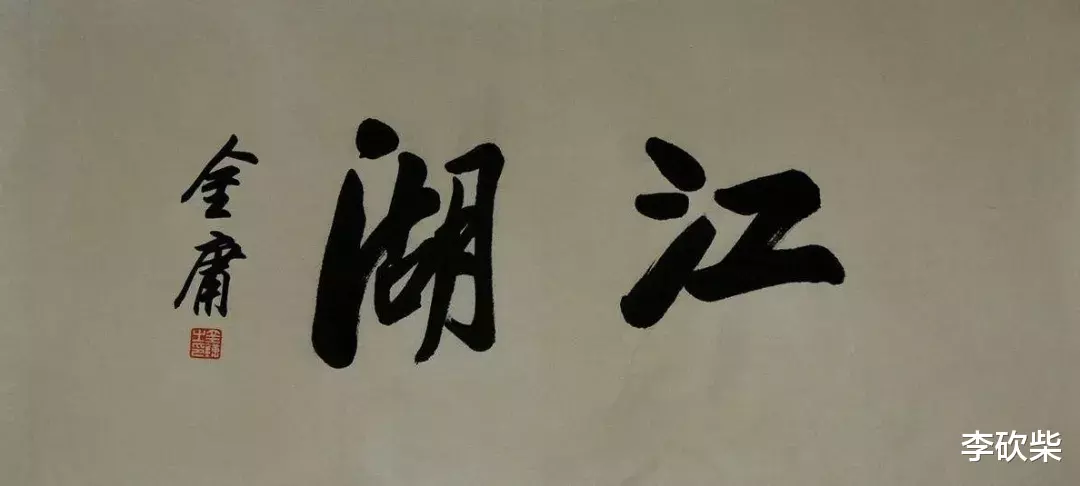 江湖
金庸
李砍柴